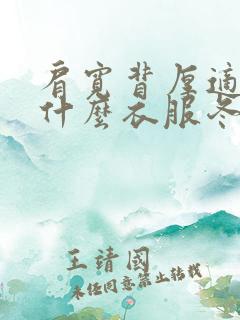 肩寬背厚適
什麼衣服冬
王靖國
未经同意禁止转载